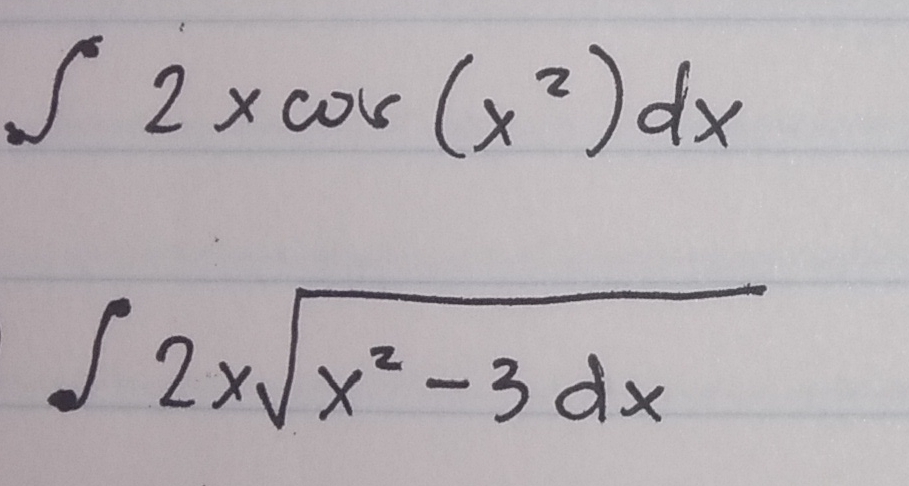 ∫ 2x cos (x²) dx
∫ 2x√(x² - 3 dx)